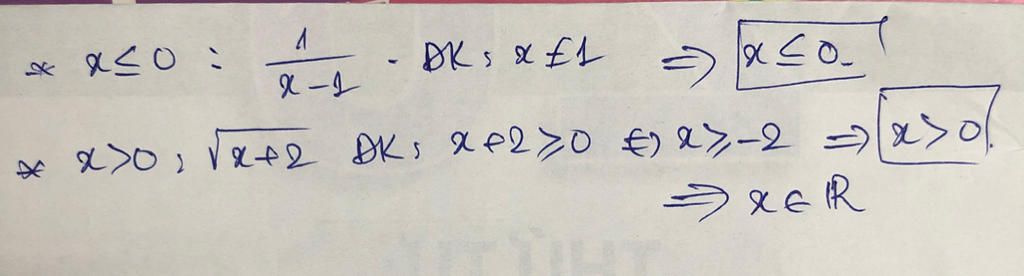 * x ≤ 0 : 1/(x-1) . ĐK: x ≠ 1 ⇒ x ≤ 0.
* x > 0 : √(x+2) ĐK: x+2 ≥ 0 ⇔ x ≥ -2 ⇒ x > 0.
⇒ x ∈ ℝ